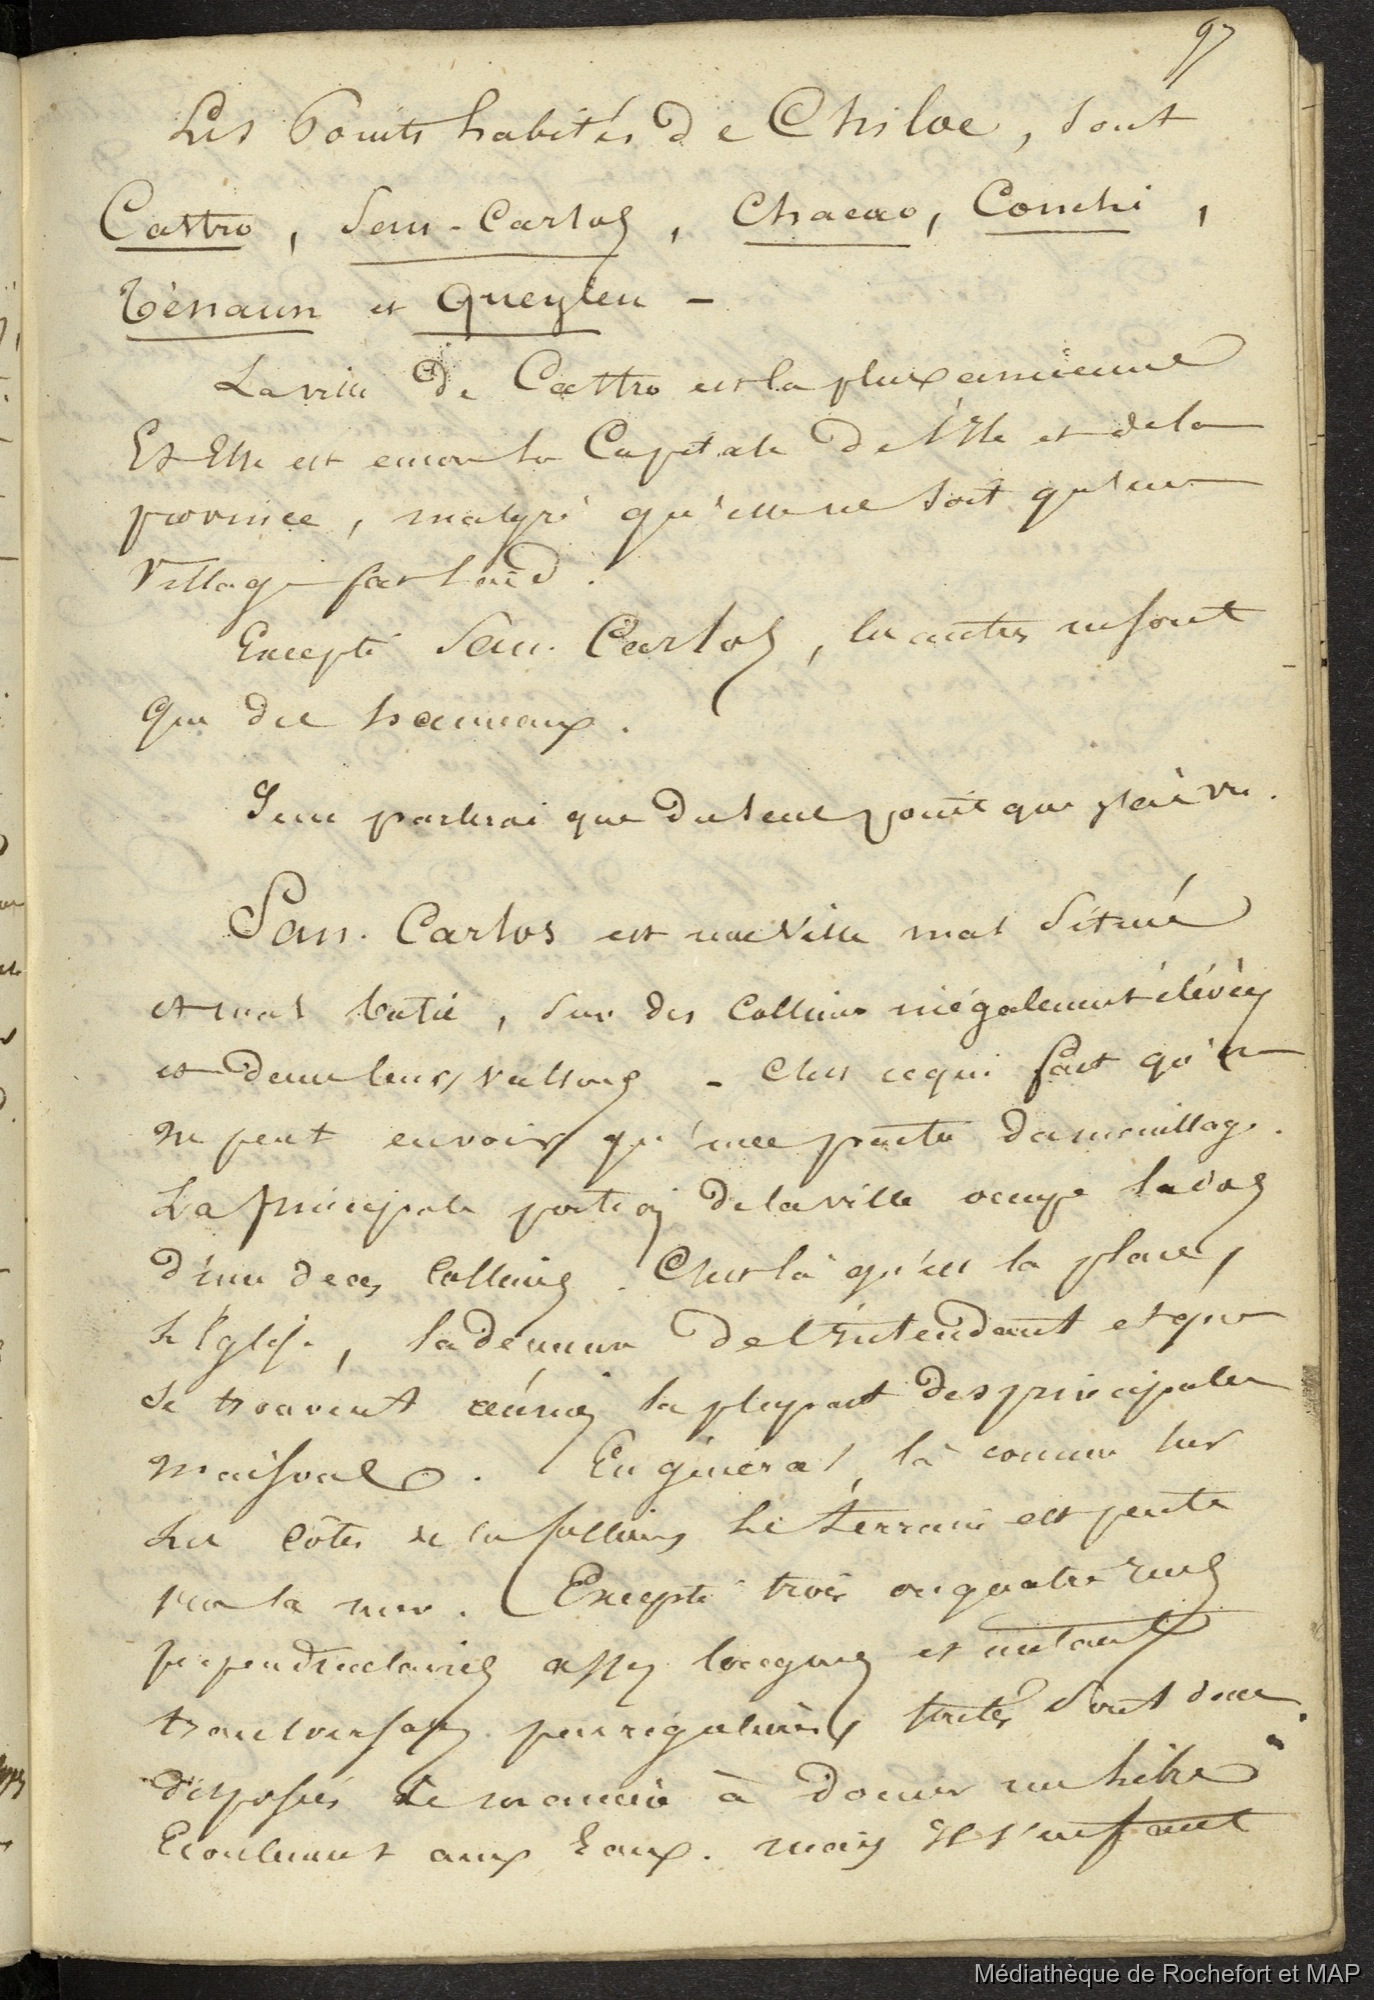 97
Les Points habités de Chiloe, sont
Castro, San-Carlos, Chacao, Conchi,
Ténaun et Queylen -
La ville de Castro est la plus ancienne
Et Elle est encore la Capitale de l'Ile et de la
province, malgré qu'elle ne soit qu'un
Village fort laid.
Excepté San. Carlos, les autres ne sont
que des hameaux.
Je ne parlerai que du seul point que j'aie vu.
San. Carlos est une Ville mal Située
et mal batie, sur des Collines inégalement élévées
et dans leurs vallons - C'est ce qui fait qu'on
ne peut en voir qu'une partie du mouillage.
La principale portion de la ville occupe le dos
d'une de ces Collines. C'est là qu'est la place,
L'Eglise, la demeure de l'intendant et que
se trouvent réunies la plupart des principales
maisons. En général, là comme sur
les côtés de la colline le terrain est en pente
vers la mer. Excepté trois ou quatre rues
perpendiculaires assez longues et autant
transversales peu régulières, toutes sont donc
disposées de manière à donner un libre
Ecoulement aux Eaux. mais il s'en faut
Médiathèque de Rochefort et MAP